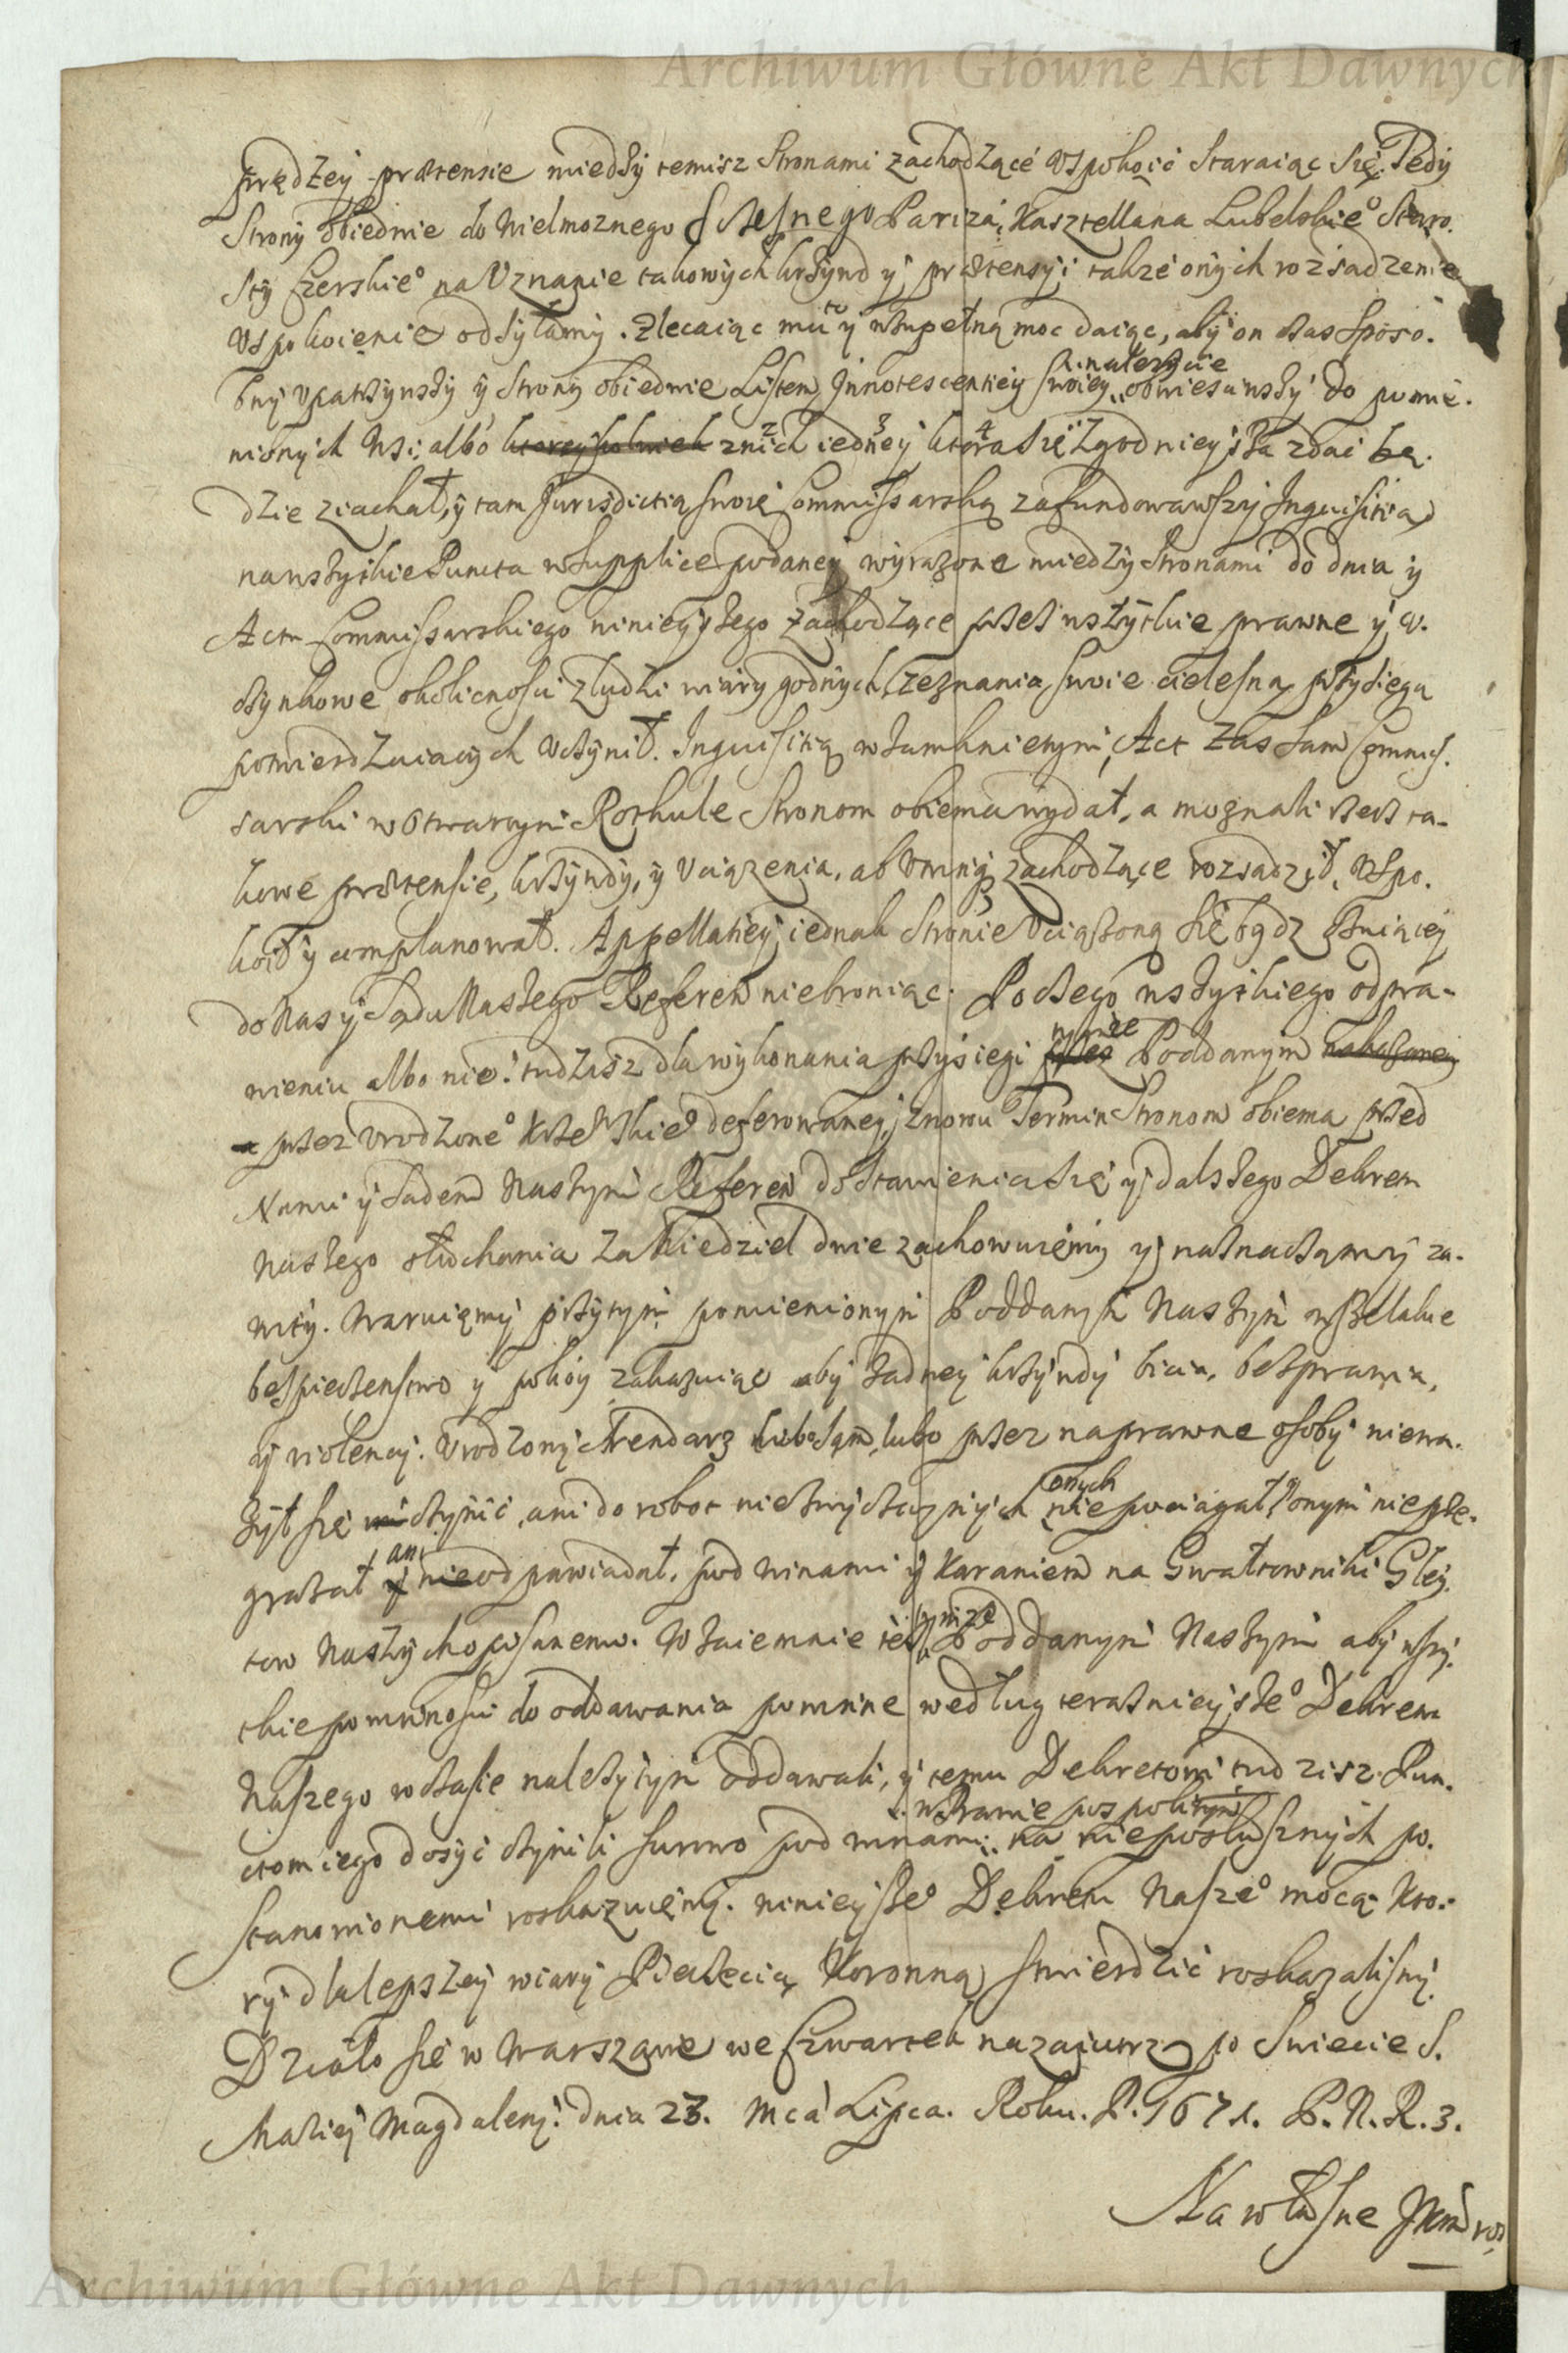 Archiwum Główne Akt Dawnych
prędzey prætensie miedzy temisz Stronami zachodzące Uspokoić Staraiąc Się. Tedy
Strony obiedwie do Wielmoznego Sczęsnego Pariza, Kasztellana Lubelskie° Staro.
sty Czerskie° na Uznanie takowych krzywd y prætensyi także onych rozsadzenie
Uspokoienie odsyłamy. Zlecaiąc mu to y zupełną moc daiąc, aby on czas Sposo.
bny upatrzywszy y Strony obiedwie Listem Innotescentiey swoiey należycie obwieściwszy do pomie.
nionych Wsi, albo z nich iedney ktora się zgodnieysza zdać bę.
dzie ziachał, y tam Jurisdictią swoię Commissarską zafundowawszy Inquisitią
na wszytkie Puncta w Supplice podaney wyrażone miedzy Stronami do dnia y
Actu Commissarskiego ninieyszego zachodzące przez wszytkie prawne y u.
czynkowe okoliczności z ludzi wiary godnych, zeznania swoie cielesną przysięgą
potwierdzaiących uczynił. Inquisitią w zamknietym, Act zas sam Commis.
sarski w otwartym Rotule Stronom obiema wydał, a moznali rzecz ta-
kowe prætensie, krzywdy, y uciązenia, ab utrinq zachodzące rozsadził, uspo.
koił y complanował. Appellatiey iednak Stronie uciążoną się bydz mniącey
do Nas y Sądu Naszego Referen niebroniąc. Po czego wszytkiego odpra-
wieniu albo nie: tudzisz dla wykonania przysięgi wyże Poddanym
przez Urodzone° deferowaney, znowu Termin Stronom obiema przed
Nami y Sadem Naszym Referen do Stawienia się y dalszego Dekretu
Naszego słuchania za Niedziel dwie zachowuiemy y naznaczamy za-
wity. Waruiemy przytym pomienionym Poddanym Naszym wszelakie
bespieczenstwo y pokóy zakazuiąc aby zadney krzywdy bicia, bezprawia,
y violencij. Urodzony Arendarz lubo sąm, lubo przez naprawne osoby niewa.
żył się czynić, ani do robot niezwyczaynych onych nie pociagał, onym nie prze.
grażał ani odpowiadał, pod winami y Karaniem na Gwałtowniki Gley.
tow Naszych opisanemi. Wzaiemnie też Poddanym Naszym aby wszy.
tkie powinności do oddawania powinne według teraznieysze° Dekretu
Naszego w czasie należytym oddawali, y temu Dekretowi tudzisz Pun.
ctom iego dosyć czynili surowo pod winami w Prawie pospolitym na nieposłusznych po.
stanowionemi roskazuiemy. ninieysze° Dekretu Nasze° mocą. Kto.-
ry dla lepszey wiary Pieczecią Koronną stwierdzić roskazalismy.
Działo się w Warszawie we Czwartek nazaiutrz po Swiecie S.
Mariey Magdaleny. dnia 23. Mcá Lipca. Roku. P. 1671. P. N. R. 3.
Na własne
Archiwum Główne Akt Dawnych